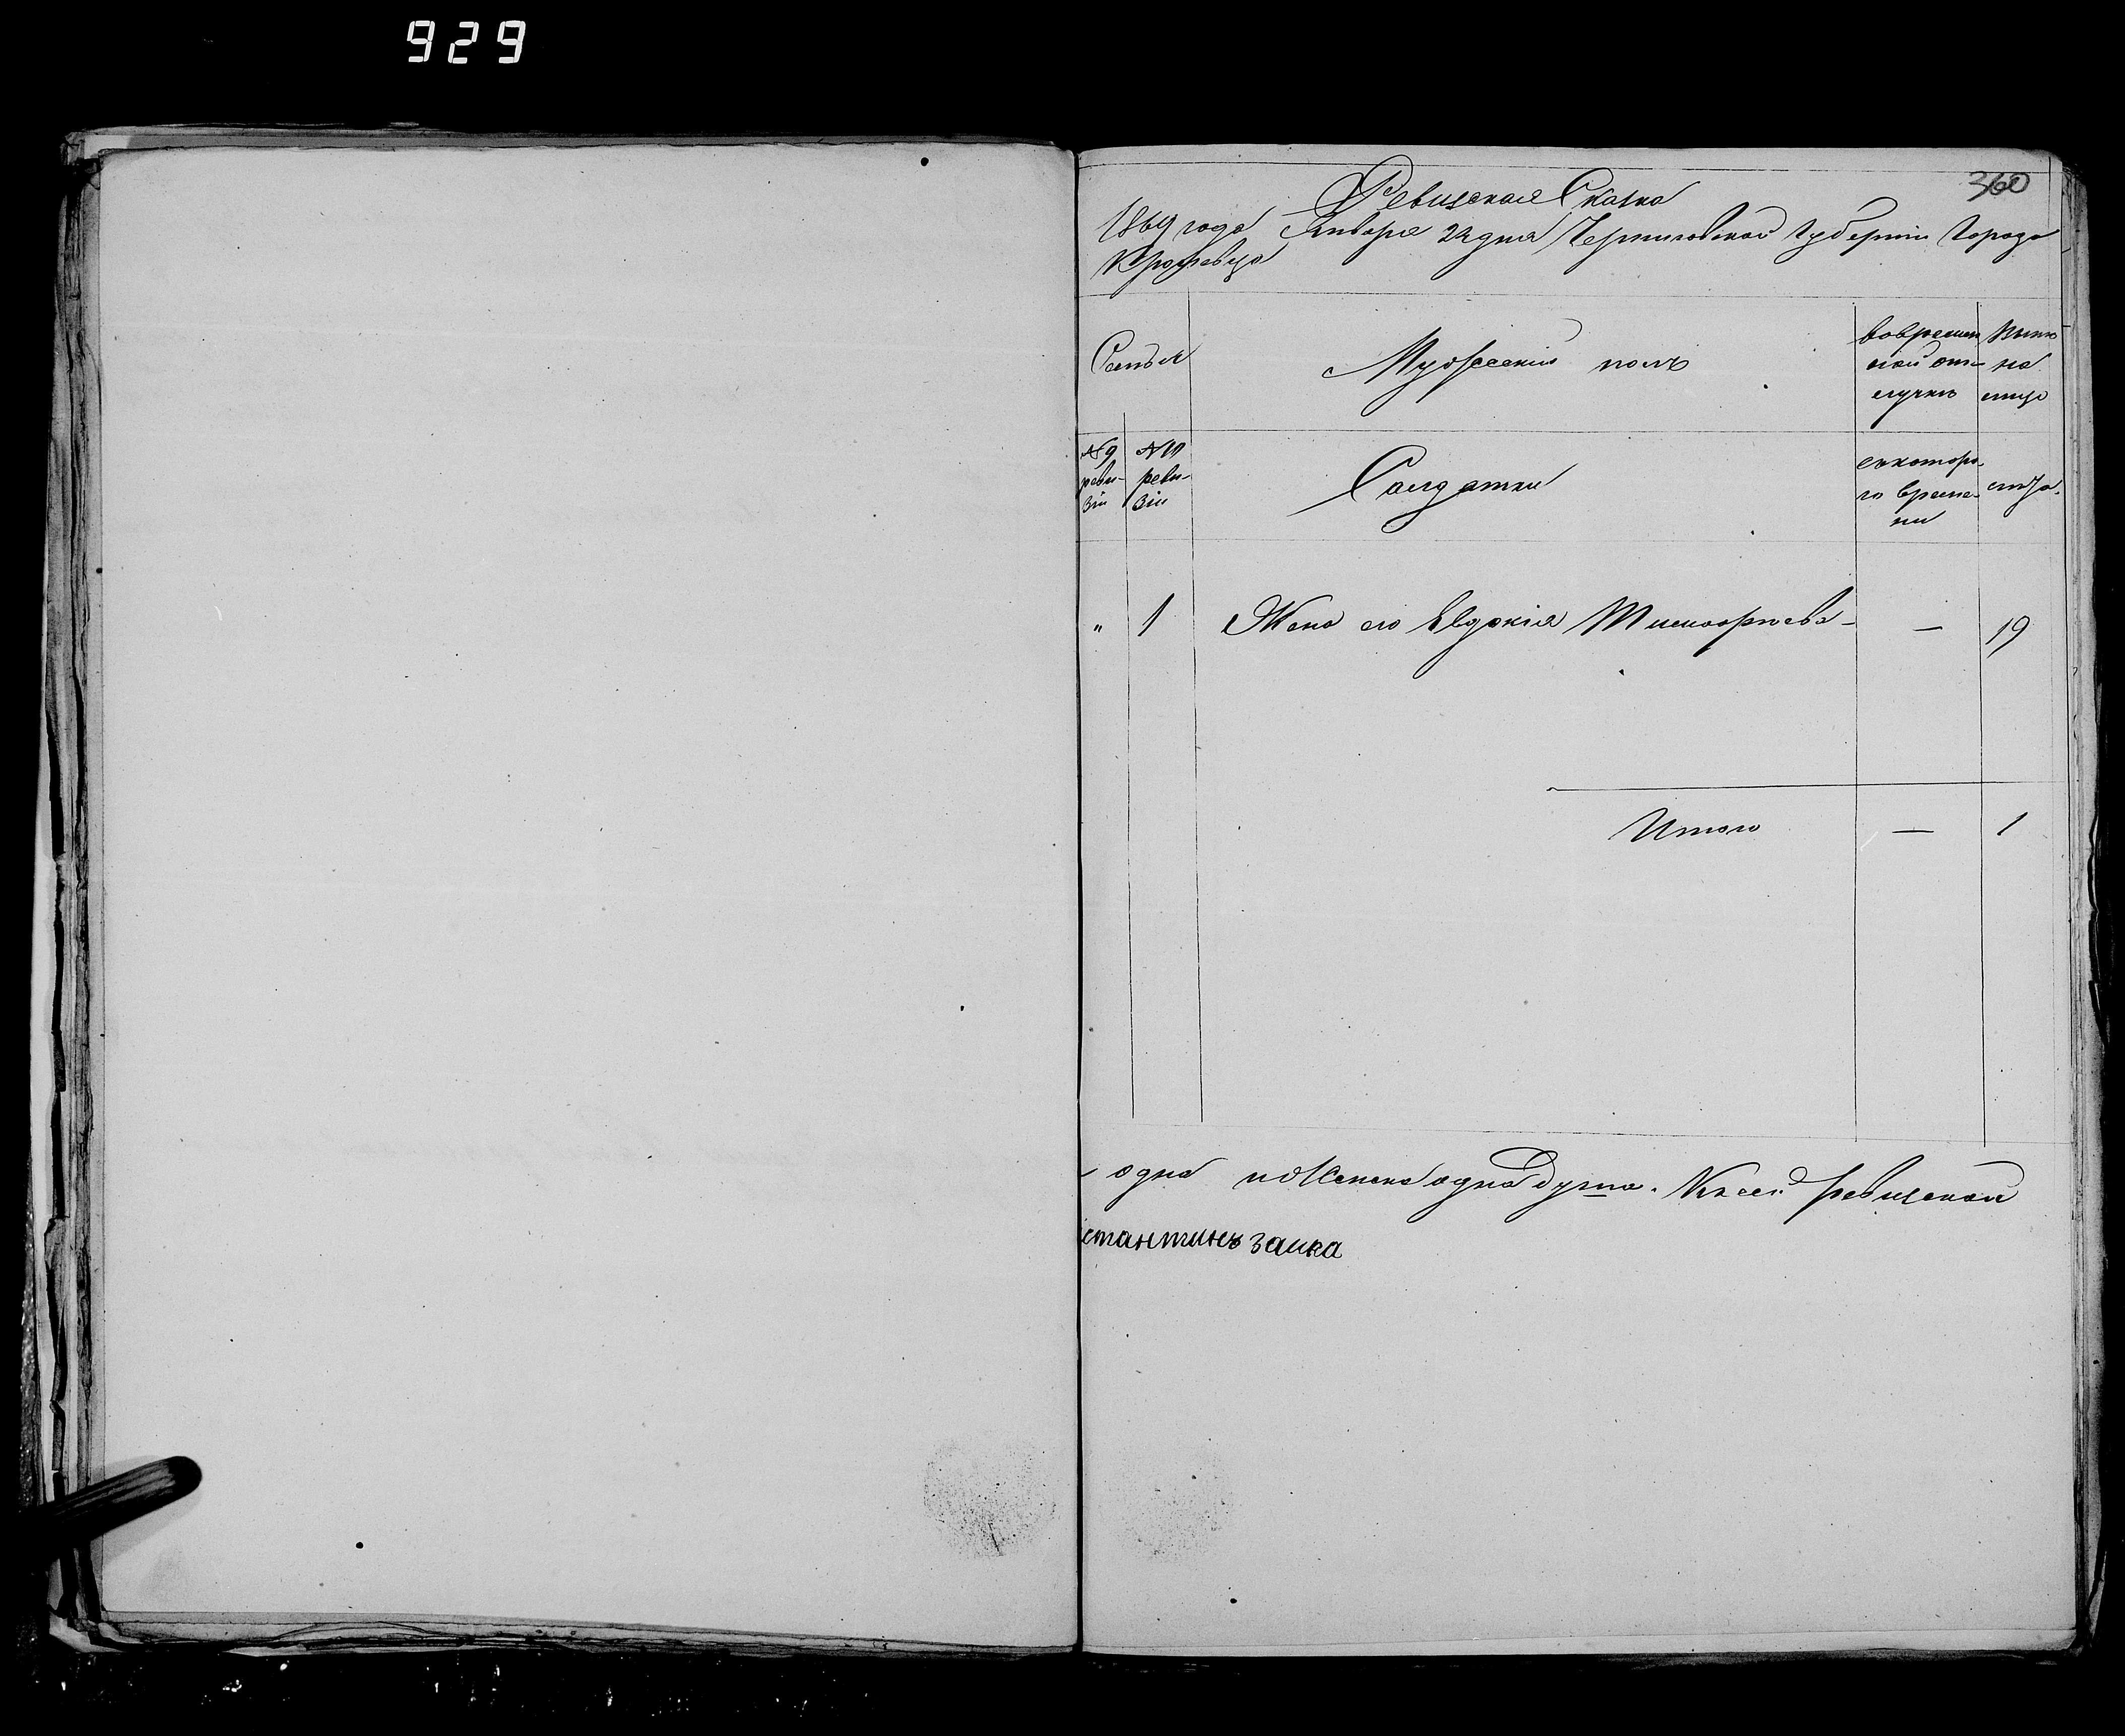 929
360
Ревизская Сказка
1869 года Января 22 дня Черниговской Губернии Города
Кролевца
Семья
Мужескій полъ
вовремен
ной от-
лучкѣ
Ныне
на
лицо
№ 9
реви-
зіи
№ 10
реви-
зіи
Солдатки
съкоторо-
го време-
ни
лѣта.
„ 1 Жена его Евдокія — 19
Итого — 1
одна иженска одна душа. Ксей ревизской
стантинъ заика